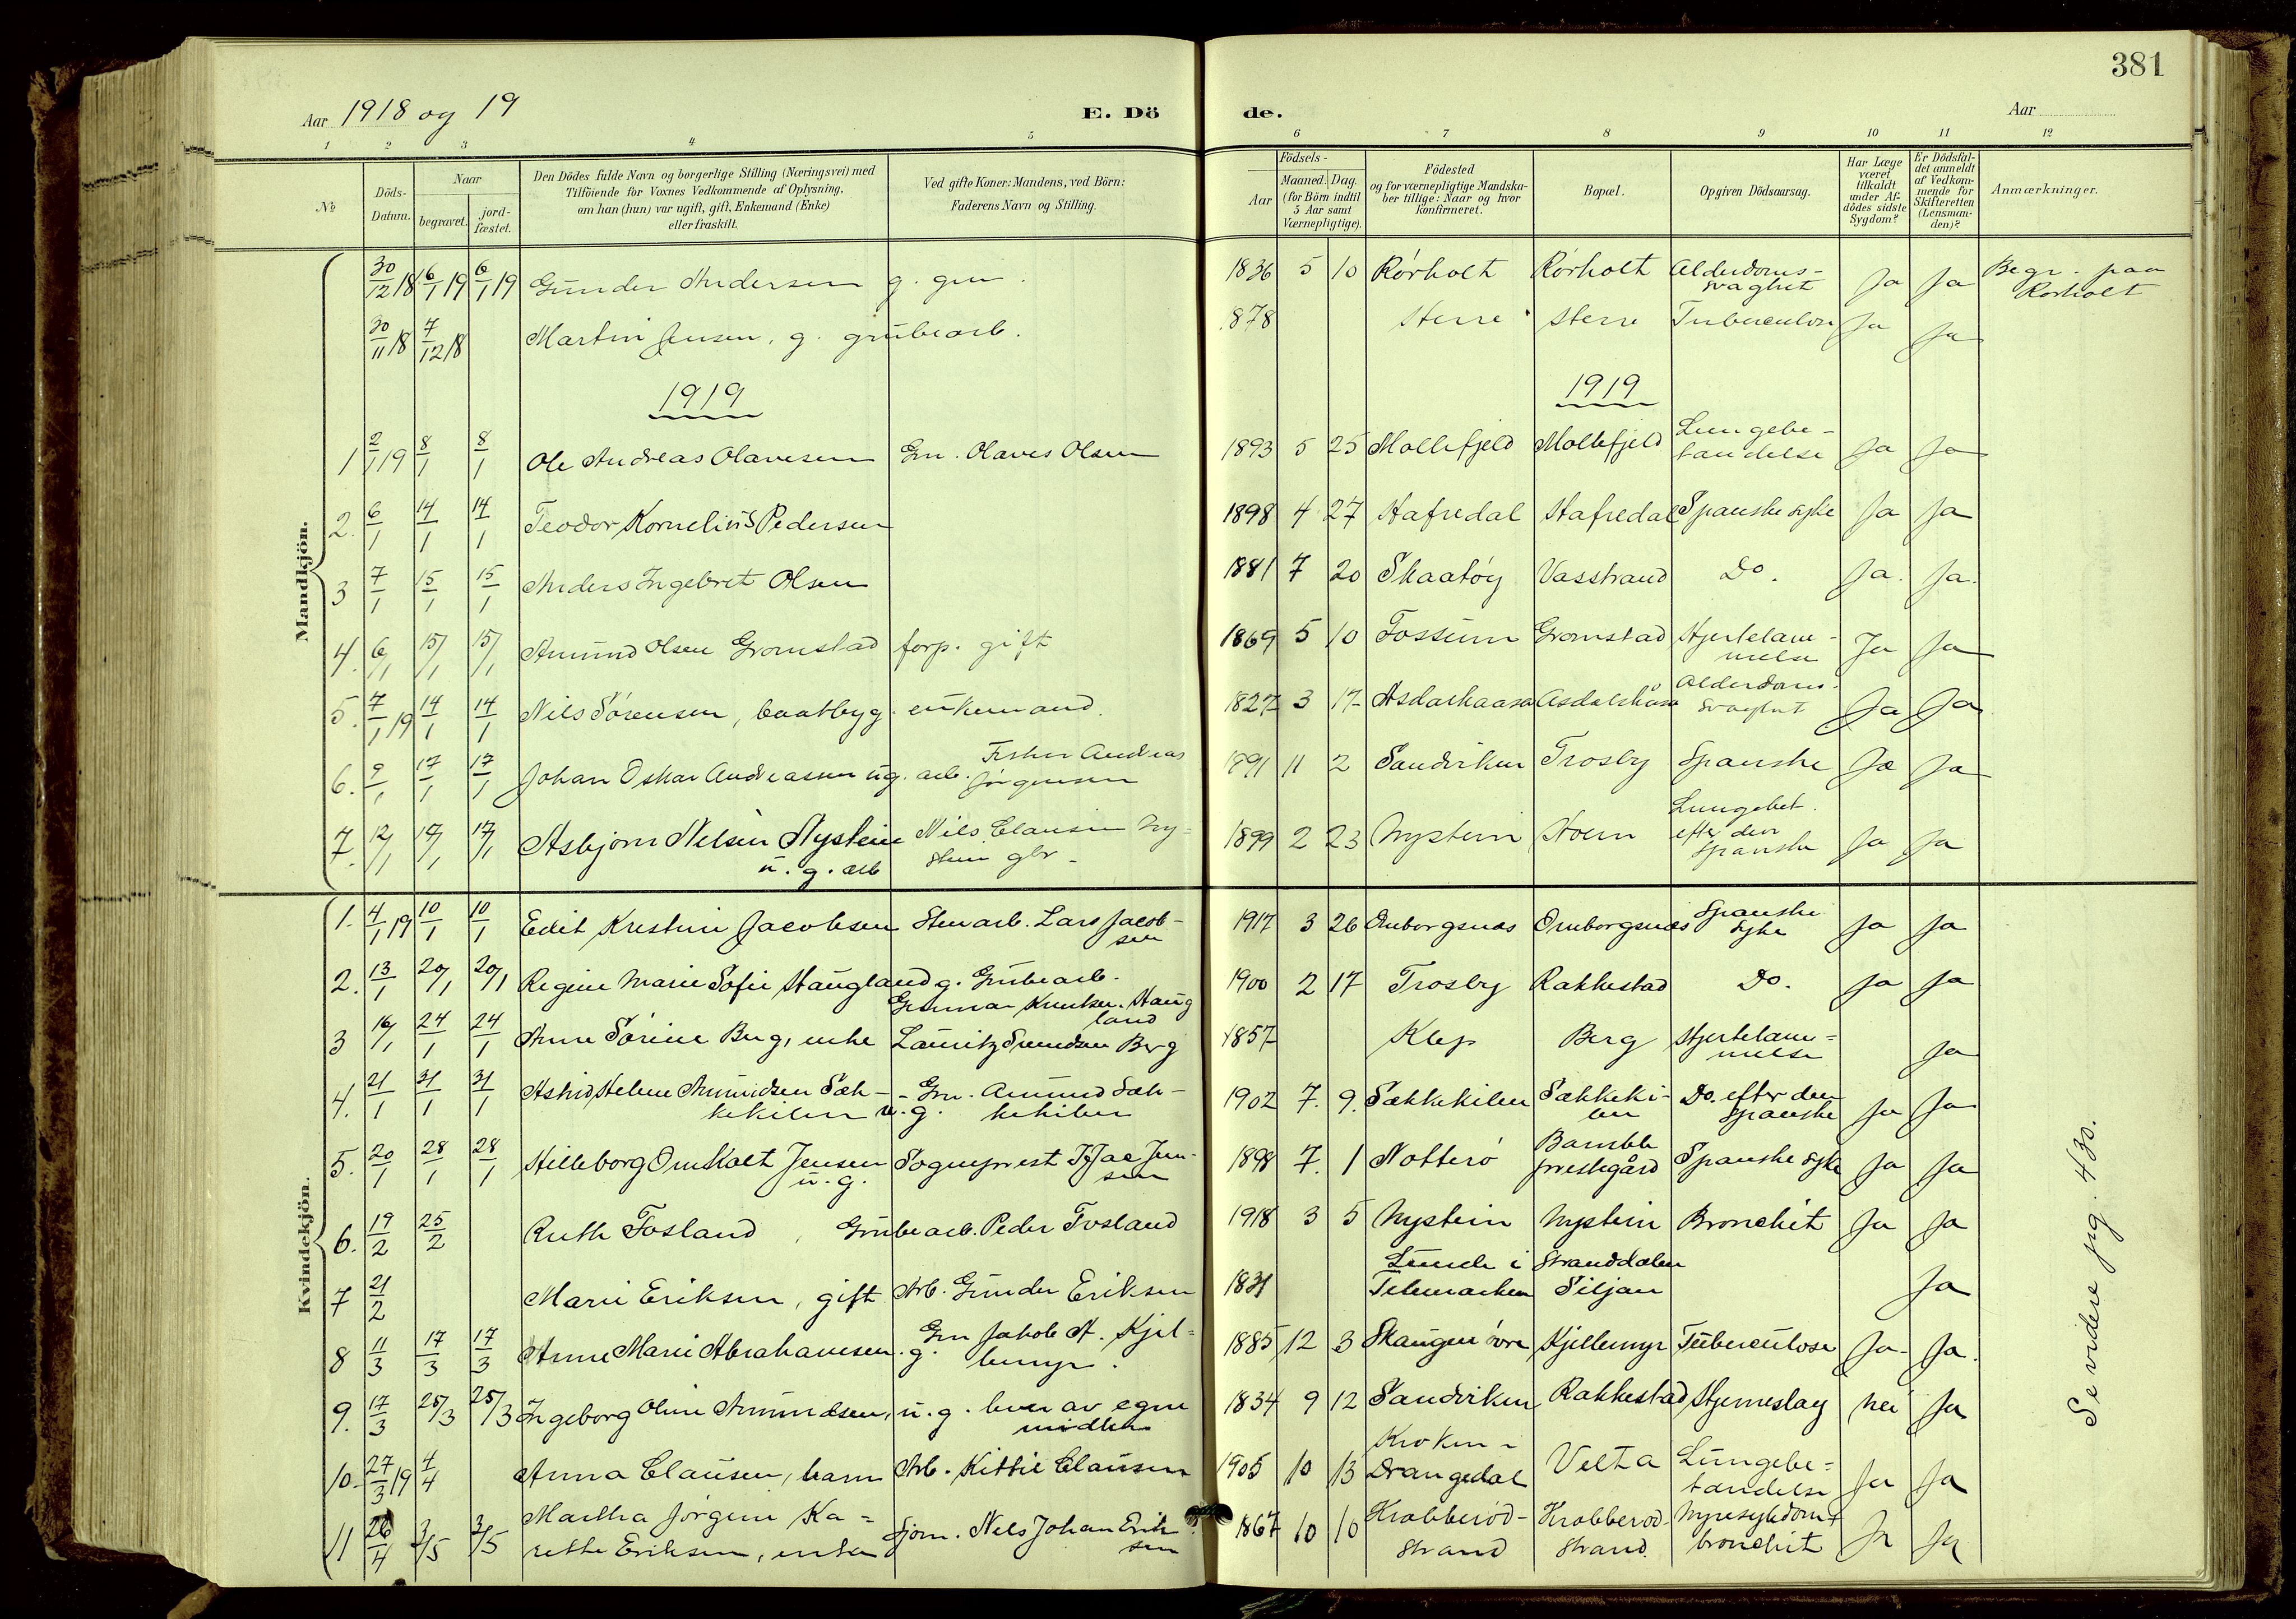 381
Aar 1918 og 19 E. Dö de. Aar
1 2 3 4 5 6 7 8 9 10 11 12
№ Döds-Datum. Naar begravet. jord-fæstet. Den Dödes fulde Navn og borgerlige Stilling (Næringsvei) med Tilföiende for Voxnes Vedkommende af Oplysning, om han (hun) var ugift, gift, Enkemand (Enke) eller fraskilt. Ved gifte Koner: Mandens, ved Börn: Faderens Navn og Stilling. Födsels- Aar Maaned. Dag. (for Börn indtil 5 Aar samt Værnepligtige). Födested og for værnepligtige Mandskaber tillige: Naar og hvor konfirmeret. Bopæl. Opgiven Dödsaarsag. Har Læge været tilkaldt under Afdödes sidste Sygdom? Er Dödsfaldet anmeldt af Vedkommende for Skifteretten (Lensmanden)? Anmærkninger.
Mandkjön.
30/12 18 6/1 19 6/1 19 Gunder Andersen g. gm. 1836 5 10 Rórholt Rórholt Alderdoms-svaghet Ja Ja Begr. paa Rorholt
30/11 18 7/12 18 Martin Jensen, g. grubearb. 878 Sterre Sterre Tuberculose Ja Ja
1919 1919
1 2/1 19 8/1 8/1 Ole Andreas Olavesen Gm. Olaves Olsen 1893 5 25 Mollefjeld Mollefjeld Lungebe-tandelse Ja Ja
2. 6/1 14/1 14/1 Teodor Kornelius Pedersen 1898 4 27 Hafredal Hafredal Spanske syke Ja Ja
3 7/1 15/1 15/1 Anders Ingebret Olsen 1881 7 20 Skaatóy Vasstrand Do. Ja. Ja.
4. 6/1 15/1 15/1 Amund Olsen Gromstad forp. gift 1869 5 10 Fossum Gromstad Hjertelam-melse Ja Ja
5. 7/1 19 14/1 14/1 Nils Sósensen, baatbyg. enkemand. 1827 3 17 Asdalkaasa Asdalskåsa Alderdoms-svaghet Ja Ja
6. 9/1 17/1 17/1 Johan Oskar Andreassen ug. arb. Fisker Andreas Jórgensen 1891 11 2 Sandviken Trosby Spanske Ja Ja
7. 12/1 17/1 17/1 Asbjorn Nilsen Nystein u. g. arb Nils Clausen Ny-stein gbr- 1899 2 23 Nystein Stoen Lungebet. efter den spanske Ja Ja
Kvindekjön.
1. 4/1 19 10/1 10/1 Edit Kristine Jacobsen Stenarb. Lars Jacob-sen 1917 3 26 Omborgsnes Omborgsnes Spanske syke Ja Ja
2. 13/1 20/1 20/1 Regine Marie Sofie Haugland g. Grubearb. Gunnar Knutsen Haug land 1900 2 17 Trosby Rakkestad Do. Ja Ja
3 16/1 24/1 24/1 Anne Sórine Berg, enke Lauritz Svendsen Berg 1857 Klep Berg Hjertelam-melse Ja
4. 21/1 31/1 31/1 Astrid Helene Amundsen Sæk-kekilen u.g. Gm. Amund Sæk-kekilen 1902 7. 9. Sækkekilen Sækkeki-len Do. efter den spanske Ja Ja
5. 20/1 28/1 28/1 Hilleborg Omholt Jensen u. g. Sogneprest Is Jac Jen-sen 1898 7. 1 Notteró Bamble prestegård Spanske syke Ja Ja
6. 19/2 25/2 Ruth Fosland, Grubearb. Peder Fosland 1918 3 5 Nystein Nystein Bronchit Ja Ja
7 21/2 Marie Eriksen, gift Arb. Gunder Eriksen 1831 Lunde i Telemarken Stranddalen Siljan Ja
8 11/3 17/3 17/3 Anne Marie Abrahamsen. g. Gm Jakob A. Kjel-lemyr. 1885 12 3 Skaugen óvre Kjellemyr Tuberculose Ja. Ja.
9. 17/3 25/3 25/3 Ingeborg Oline Amundsen, u. g. lever av egne midler 1834 9 12 Sandviken Rakkestad Hjerneslag nei Ja
10. 27/3 19 4/4 Anna Clausen, barn Arb. Kittil Clausen 1905 10 13 Kroken-Drangedal Velta Lungebe-tandelse Ja Ja
11 26/4 3/5 3/5 Martha Jórgine Ka-rethe Eriksen, enke Sjóm. Nils Johan Erik-sen 1867 10 10 Krabberód-strand Krabberod-strand Nyresykdom + bronchit Ja Ja
Se videre pg. 430.